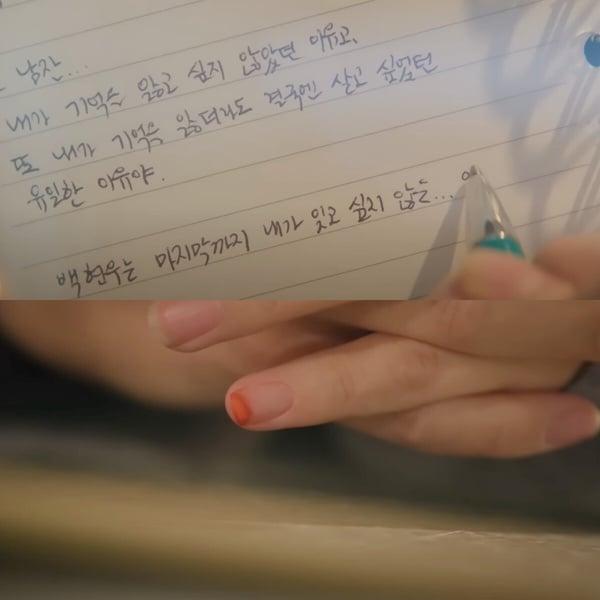 는 남잔...
내가 기억을 잃고 싶지 않았던 이유고,
또 내가 기억을 잃더라도 결국엔 살고 싶었던
유일한 이유야.
백현우는 마지막까지 내가 잊고 싶지 않은...